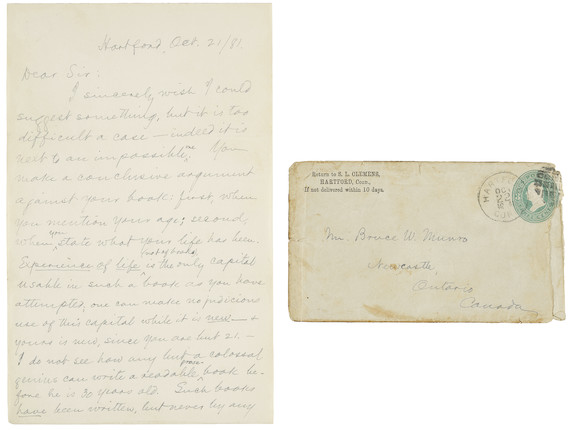 Hartford, Oct. 21/81.
Dear Sir:
I sincerely wish I could
suggest something, but it is too
difficult a case — indeed it is
next to an impossible one. You
make a conclusive argument
against your book: first, when
you mention your age; second,
when you state what your life has been.
Experience of life (not of books) is the only capital
usable in such a book as you have
attempted; one can make no judicious
use of this capital while it is new — &
yours is new, since you are but 21. —
I do not see how any but a colossal
genius can write a readable prose book be-
fore he is 30 years old. Such books
have been written, but never by any
Return to S. L. CLEMENS,
HARTFORD, Conn.,
If not delivered within 10 days.
Mr. Bruce W. Munro
Newcastle,
Ontario
Canada